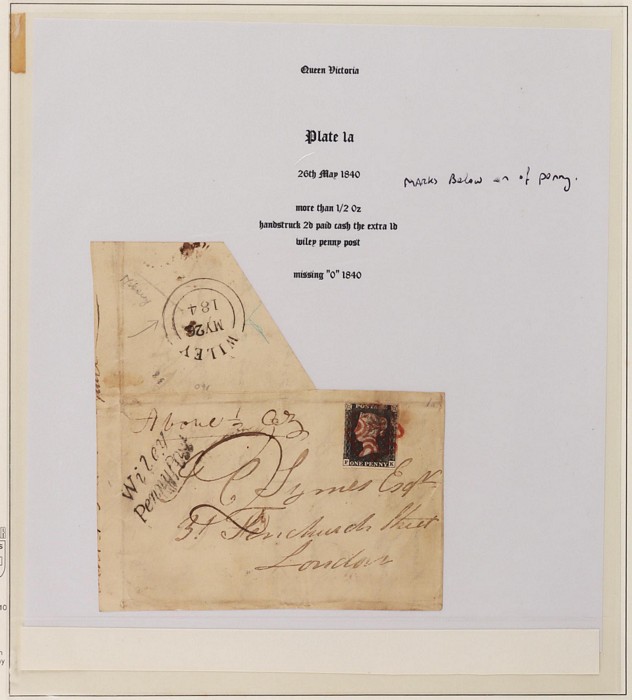 Queen Victoria
Plate 1a
26th May 1840
marks Below of penny.
more than 1/2 Oz
handstruck 2d paid cash the extra 1d
wiley penny post
missing "0" 1840
184
MY26
WILEY
Above 1/2 Oz
POSTAGE
ONE PENNY
Wiley
Penny Post
2
C Symes Esqr
Fenchurch Street
London